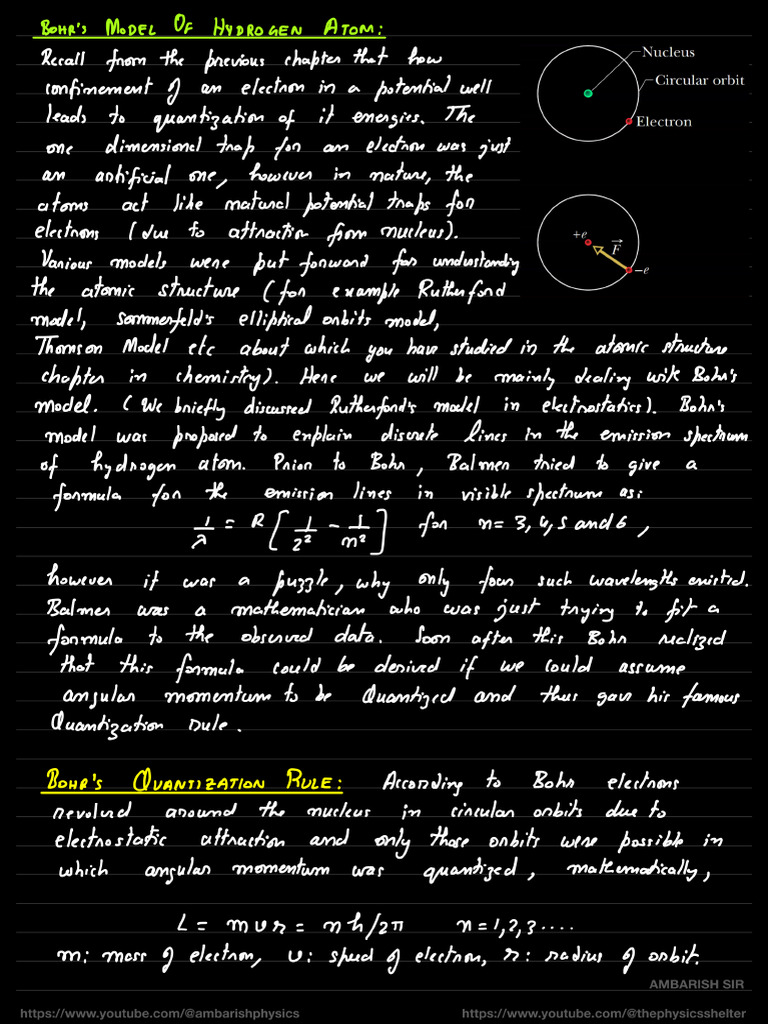 BOHR'S MODEL OF HYDROGEN ATOM:
Recall from the previous chapter that how
confinement of an electron in a potential well
leads to quantization of it energies. The
one dimensional trap for an electron was just
an artificial one, however in nature, the
atoms act like natural potential traps for
electrons (due to attraction from nucleus).
Various models were put forward for understanding
the atomic structure (for example Rutherford
model, Sommerfeld's elliptical orbits model,
Thomson Model etc about which you have studied in the atomic structure
chapter in chemistry). Here we will be mainly dealing with Bohr's
model. (We briefly discussed Rutherford's model in electrostatics). Bohr's
model was proposed to explain discrete lines in the emission spectrum
of hydrogen atom. Prior to Bohr, Balmer tried to give a
formula for the emission lines in visible spectrum as:
1/λ = R [1/2² - 1/n²] for n = 3, 4, 5 and 6,
however it was a puzzle, why only four such wavelengths existed.
Balmer was a mathematician who was just trying to fit a
formula to the observed data. Soon after this Bohr realized
that this formula could be derived if we could assume
angular momentum to be Quantized and thus gave his famous
Quantization rule.
BOHR'S QUANTIZATION RULE: According to Bohr electrons
revolved around the nucleus in circular orbits due to
electrostatic attraction and only those orbits were possible in
which angular momentum was quantized, mathematically,
L = mvr = nh/2π n = 1, 2, 3 ....
m: mass of electron, v: speed of electron, r: radius of orbit.
Nucleus
Circular orbit
Electron
+e
F
-e
AMBARISH SIR
https://www.youtube.com/@ambarishphysics
https://www.youtube.com/@thephysicsshelter